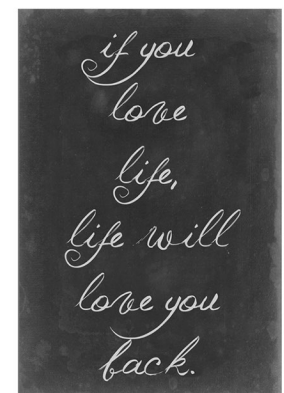 if you
love
life,
life will
love you
back.